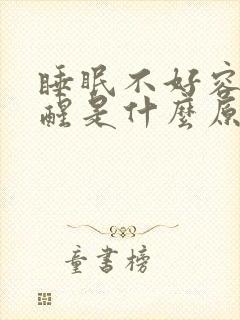 睡眠不好容
醒是什麼原
童書榜